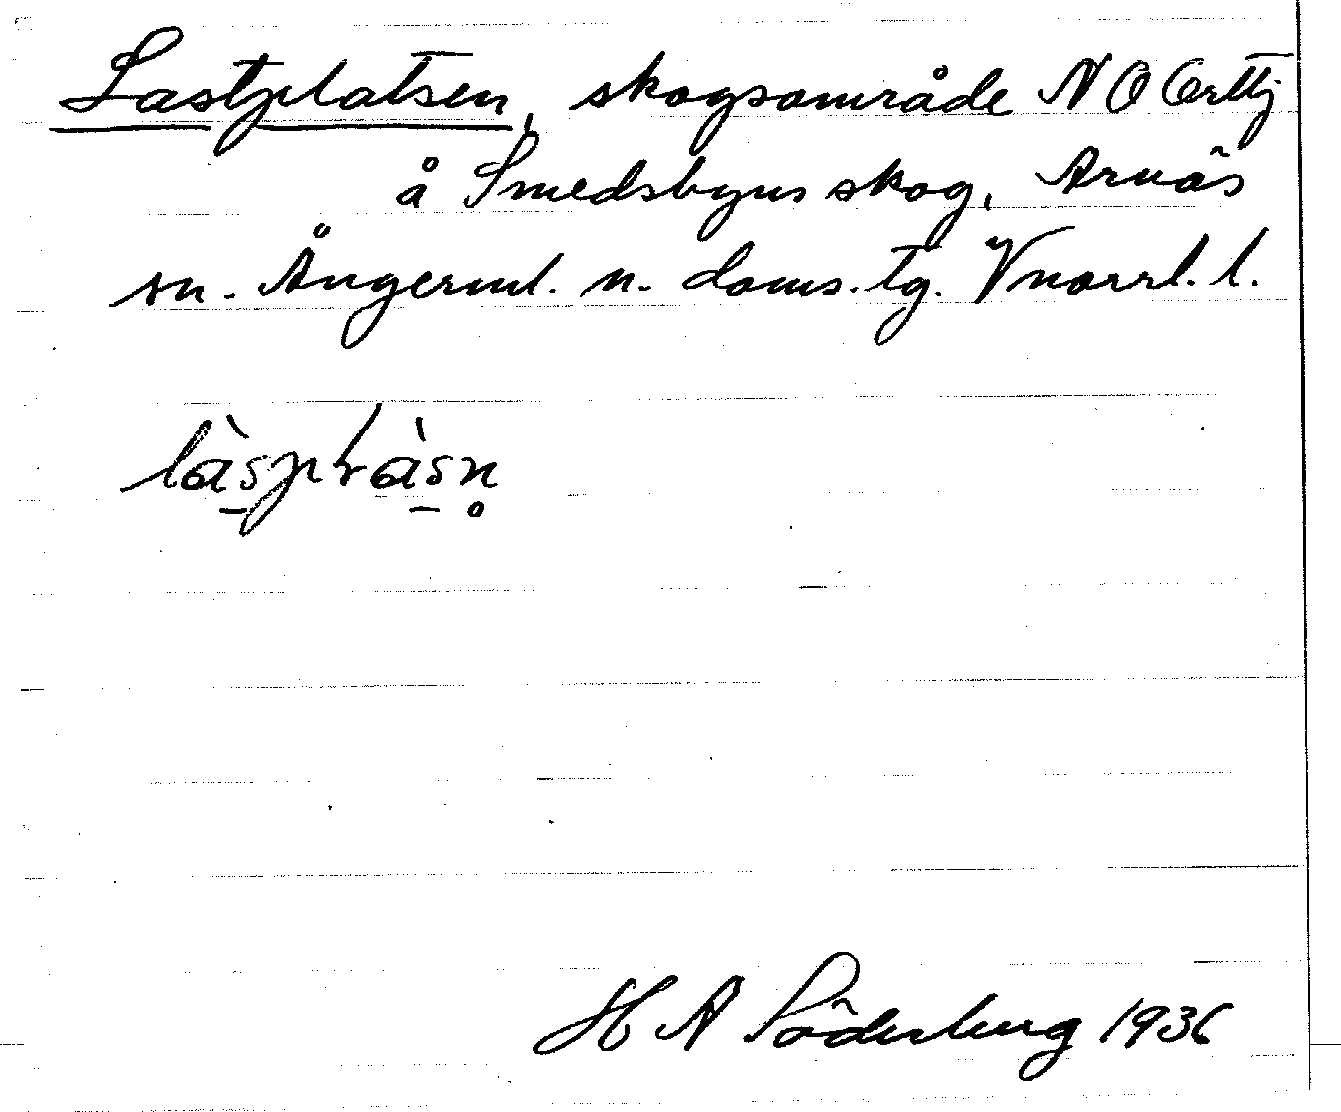 Lastplatsen, skogsområde NO Orttj
å Smedsbyns skog, Arnäs
sn. Ångerml. n. doms. tg. Vnorrl. l.
H A Söderberg 1936